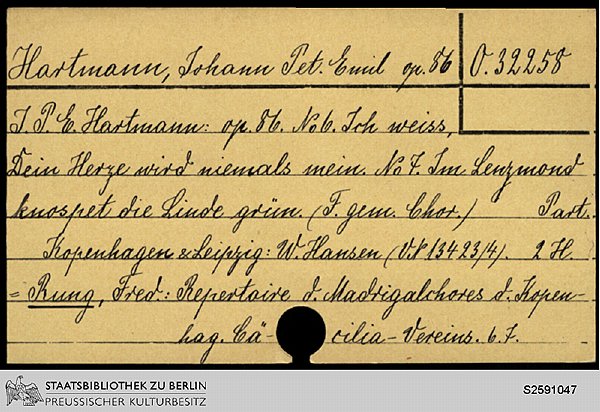 Hartmann, Johann Pet. Emil op. 86 O. 32258
J. P. E. Hartmann: op. 86. No 6. Ich weiss,
Dein Herze wird niemals mein. No 7. Im Lenzmond
knospet die Linde grün. (F. gem. Chor.) Part.
Kopenhagen & Leipzig: W. Hansen (V.N 13423/4). 2 H.
= Rung, Fred.: Repertoire d. Madrigalchores d. Kopen-
hag. Cä- cilia-Vereins. 6. 7.
STAATSBIBLIOTHEK ZU BERLIN
PREUSSISCHER KULTURBESITZ
S2591047